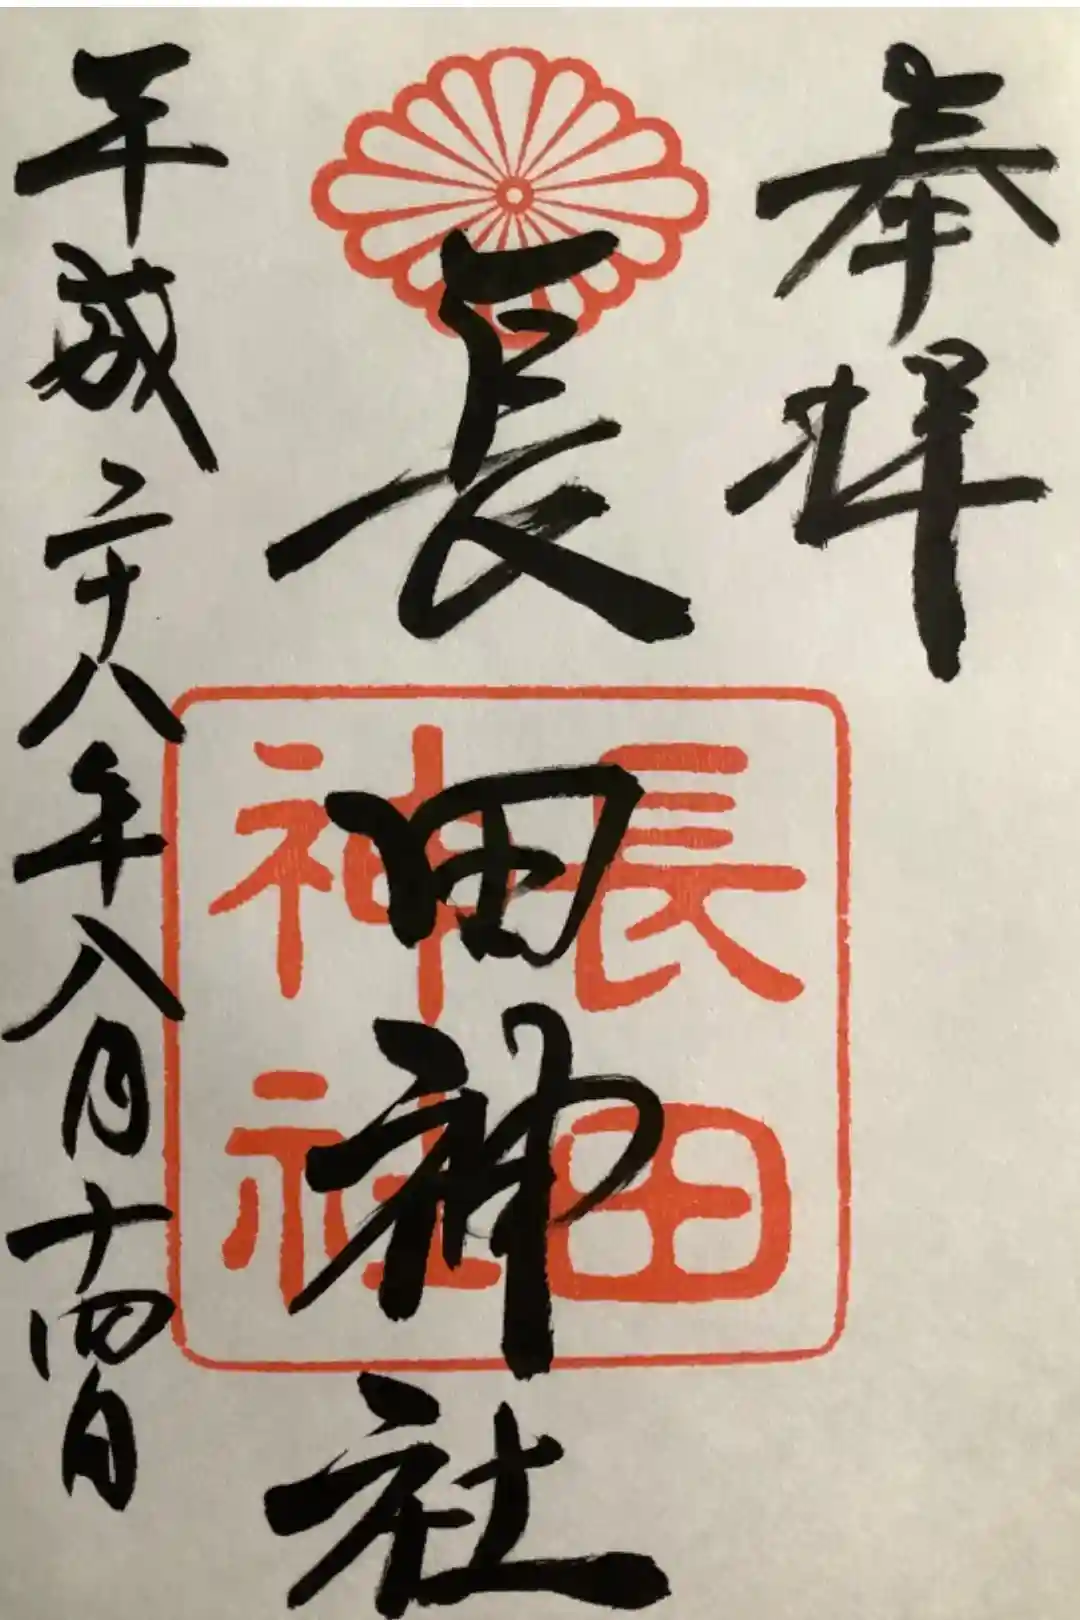 奉拝
長田神社
長田
神社
平成二十八年八月十四日